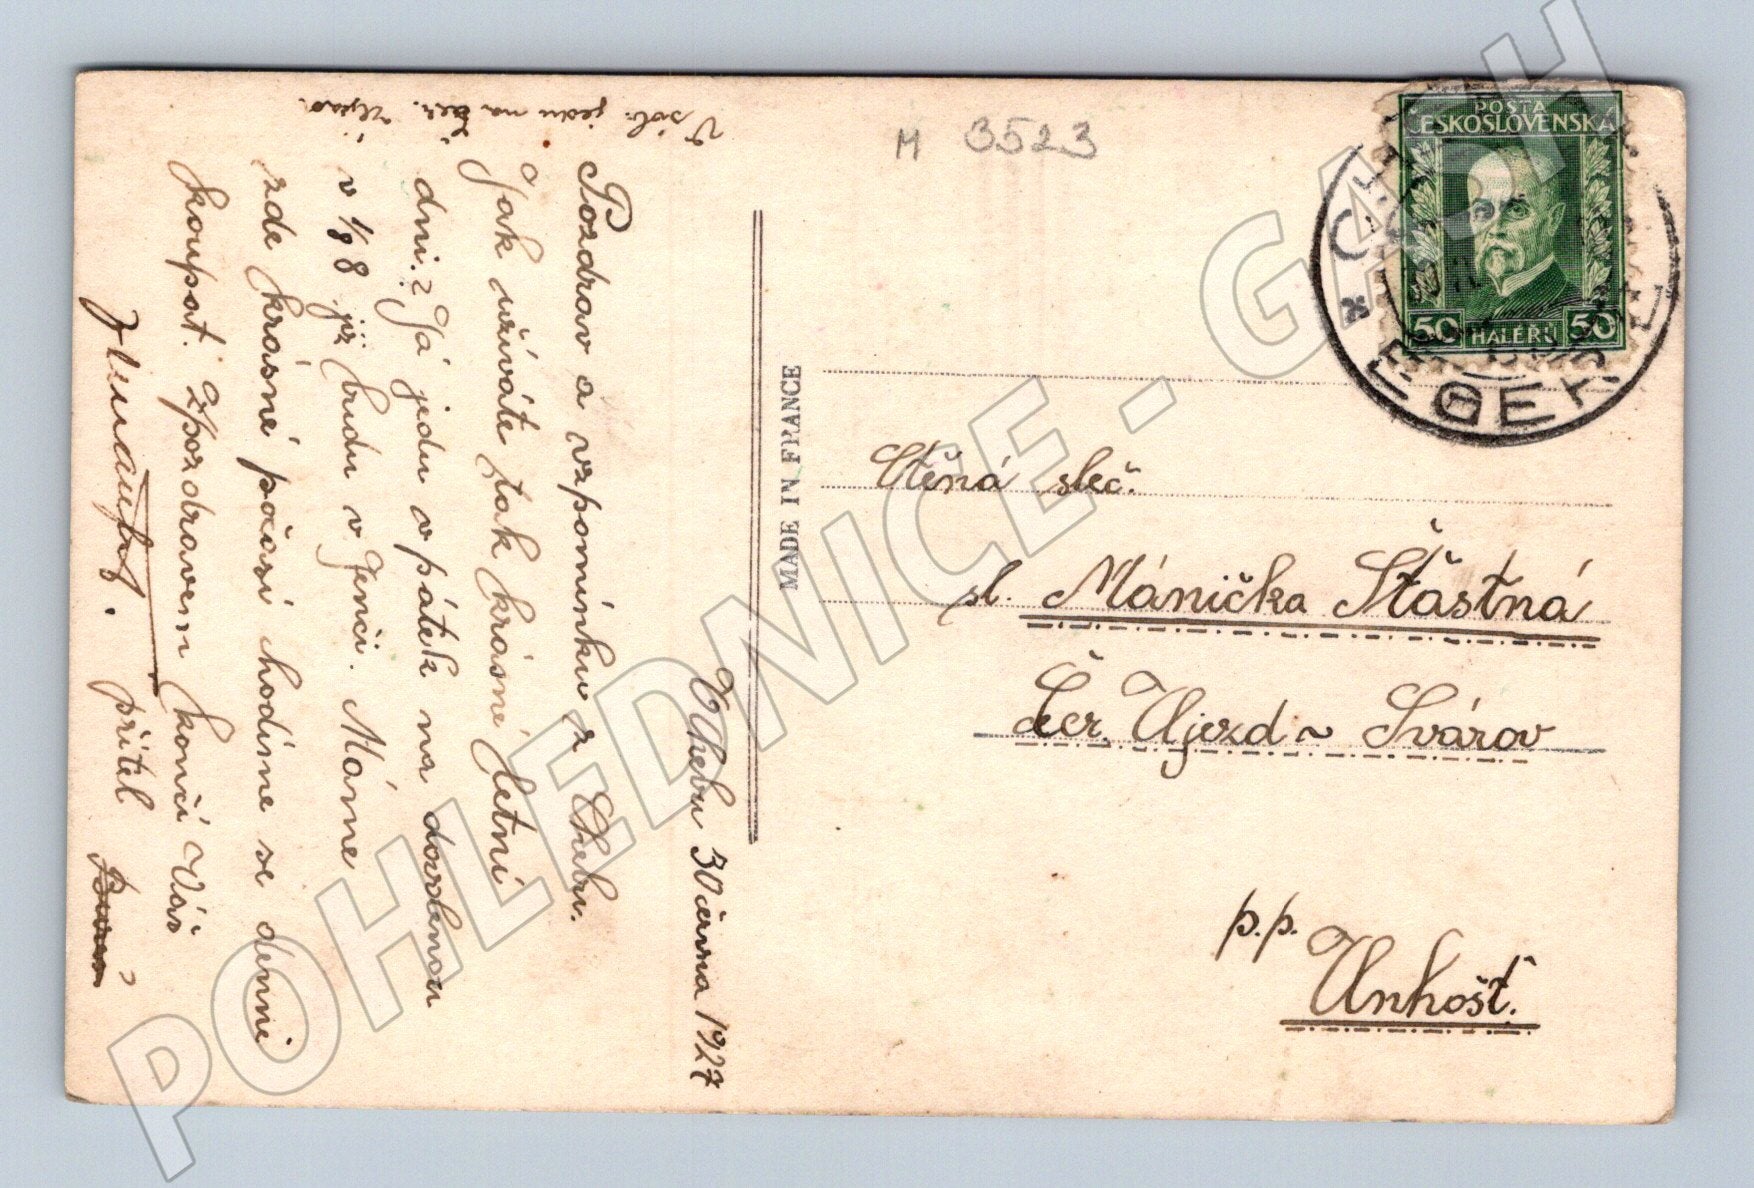 V Chebu 30 června 1927
Pozdrav a vzpomínku z Chebu.
Jak užíváte tak krásné letní
dni? Já jedu v pátek na dovolenou
v 1/8 již budu v Jenči. Máme
zde krásné počasí hodíme se denně
koupat. Zpozdravem končí Váš
přítel
V sob. jedu na Čer. Újezd.
M 3523
POSTA
ČESKOSLOVENSKÁ
50 HALÉŘŮ 50
CHEB
EGER
MADE IN FRANCE
Ctěná sleč.
sl. Mánička Šťastná
Čer. Újezd ~ Svárov
p.p.
Unhošť.
POHLEDNICE - GASH